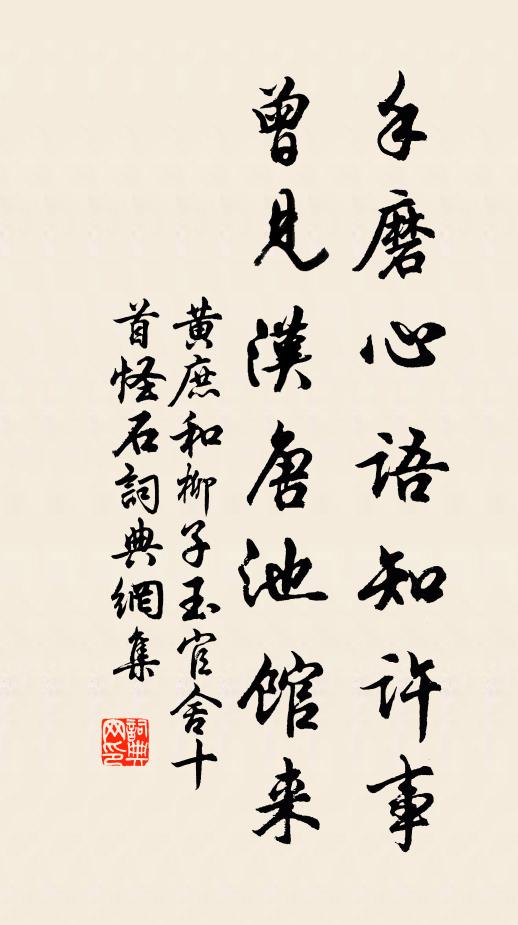 手磨心语知许事
曾见汉唐池馆来
黄庶和柳子玉官舍十
首怪石词典網集
詞典
网印